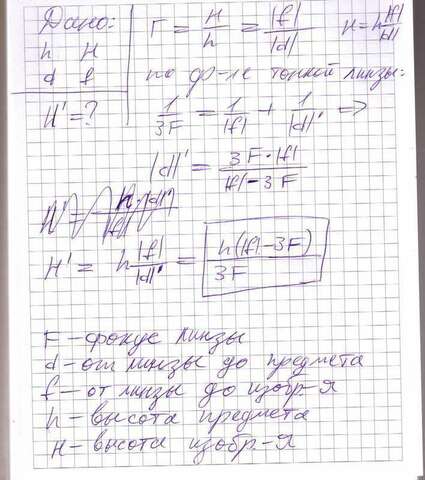 Дано:
h H
d f
H' = ?
Г = H/h = |f|/|d| H = h|f|/|d|
по ф-ле тонкой линзы:
1/3F = 1/|f| + 1/|d|' =>
|d|' = 3F·|f|/|f|-3F
H' = h|f|/|d|' = h(|f|-3F)/3F
F – фокус линзы
d – от линзы до предмета
f – от линзы до изобр-я
h – высота предмета
H – высота изобр.-я